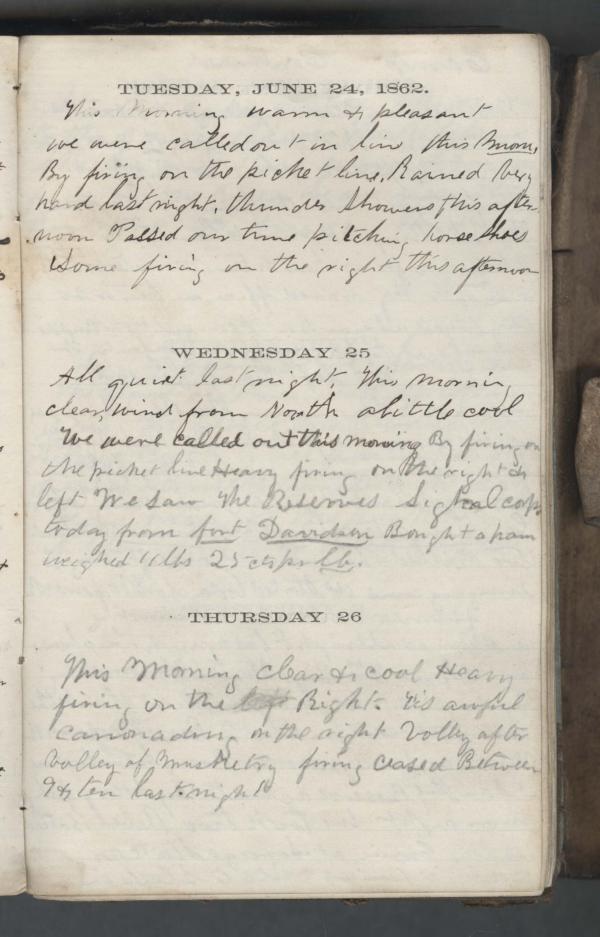 TUESDAY, JUNE 24, 1862.
This Morning warm & pleasant
we were called out in line this Morn,
By firing on the picket line, Rained Very
hard last night, thunder Showers this after
noon Passed our time pitching horse Shoes
Some firing on the right this afternoon
WEDNESDAY 25
All quiet last night, This Morning
clear, wind from North a little cool
We were called out this morning By firing on
the picket line Heavy firing on the right &
left We Saw the Reserves Signal corps
today from fort Davidson Bought a ham
weighed 11 lbs 25 cts pr lb.
THURSDAY 26
This Morning clear & cool Heavy
firing on the left Right. Tis awful
cannonading on the right Volley after
Volley of Musketry firing ceased Between
9 & ten last night